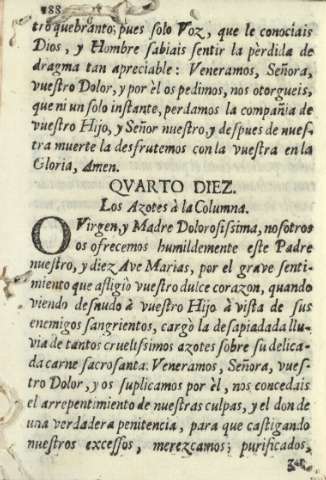 188
tro quebranto; pues solo Voz, que le conociais
Dios, y Hombre sabiais sentir la pèrdida de
dragma tan apreciable: Veneramos, Señora,
vuestro Dolor, y por èl os pedimos, nos otorgueis,
que ni un solo instante, perdamos la compañia de
vuestro Hijo, y Señor nuestro, y despues de nues-
tra muerte la desfrutemos con la vuestra en la
Gloria, Amen.
QVARTO DIEZ.
Los Azotes à la Columna.
O Virgen, y Madre Dolorosissima, nosotros
os ofrecemos humildemente este Padre
nuestro, y diez Ave Marias, por el grave senti-
miento que afligio vuestro dulce corazon, quando
viendo desnudo à vuestro Hijo à vista de sus
enemigos sangrientos, cargò la desapiadada llu-
via de tantos cruelissimos azotes sobre su delica-
da carne sacrosanta: Veneramos, Señora, vues-
tro Dolor, y os suplicamos por èl, nos concedais
el arrepentimiento de nuestras culpas, y el don de
una verdadera penitencia, para que castigando
nuestros excessos, merezcamos; purificados,